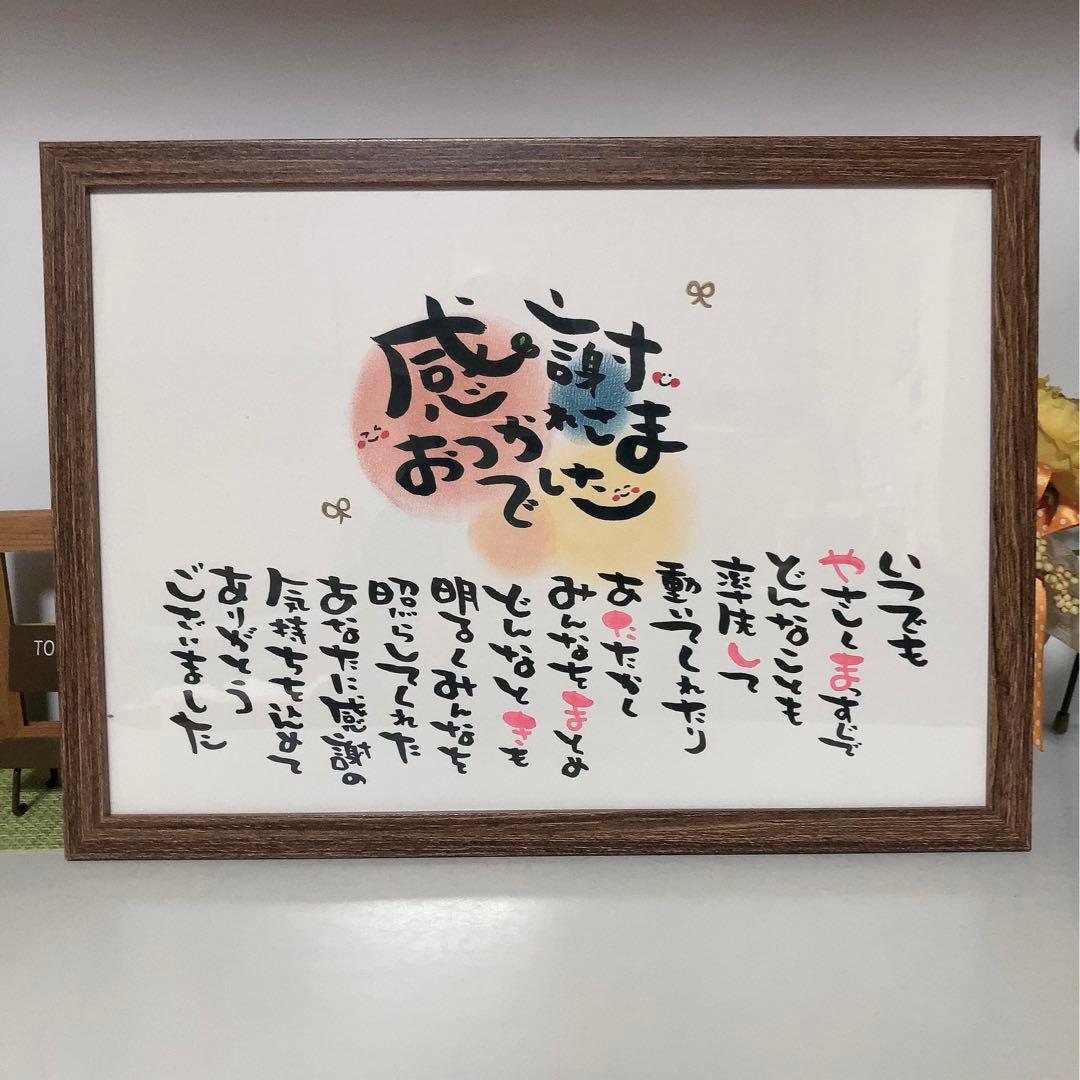 感謝
おつかれさま
でした
いつでも
やさしくまっすぐで
どんなことも
率先して
動いてくれたり
あたたかく
みんなをまとめ
どんなときも
明るくみんなを
照らしてくれた
あなたに感謝の
気持ちを込めて
ありがとう
ございました
TO